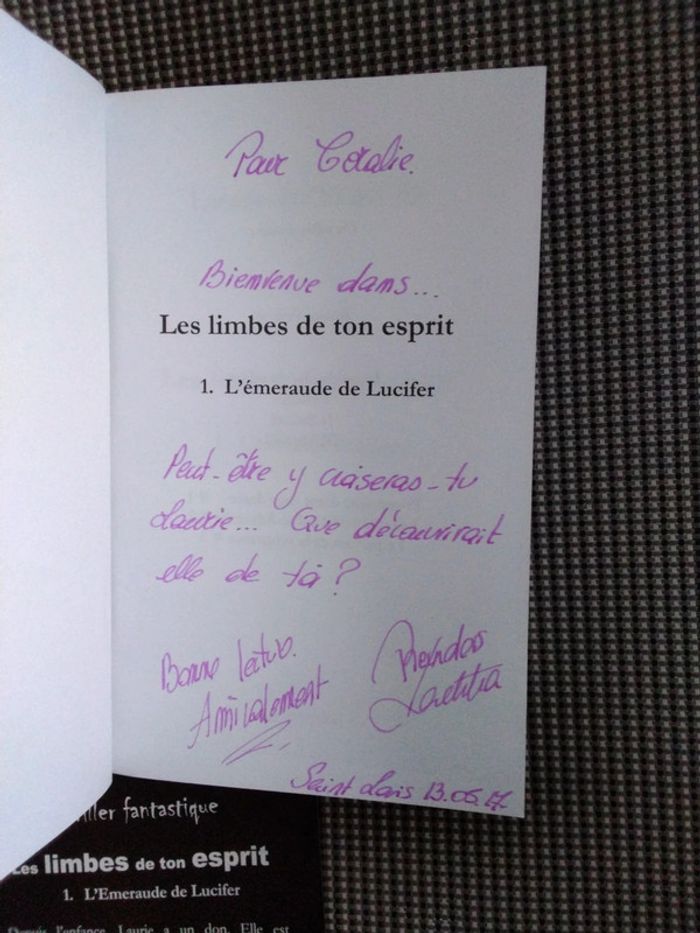 Pour Coralie.
Bienvenue dans...
Les limbes de ton esprit
1. L'émeraude de Lucifer
Peut-être y croiseras-tu
Laurie... Que découvrirait
elle de toi?
Bonne lecture.
Amicalement
Laetitia
Saint Louis 13.05.17.
ller fantastique
Les limbes de ton esprit
1. L'Emeraude de Lucifer
Depuis l'enfance, Laurie a un don. Elle est